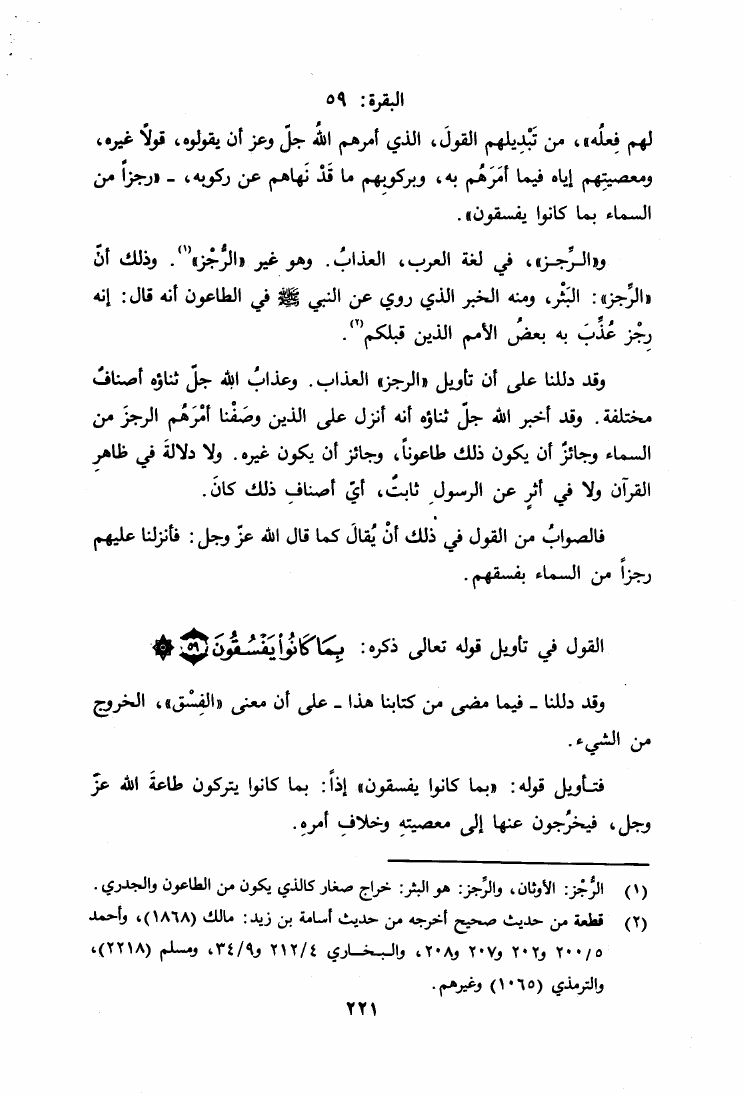 البقرة: ٥٩
لهم فِعلُه»، من تَبْدِيلهم القولَ، الذي أمرهم اللهُ جلّ وعز أن يقولوه، قولاً غيره،
ومعصيتِهم إياه فيما أمَرَهُم به، وبركوبِهم ما قَدْ نَهاهم عن ركوبه، ـ «رجزاً من
السماء بما كانوا يفسقون».
و«الـرِّجـز»، في لغة العرب، العذابُ. وهو غير «الرُّجْز»(١). وذلك أنّ
«الرِّجز»: البَثْر، ومنه الخبر الذي روي عن النبي ﷺ في الطاعون أنه قال: إنه
رِجْز عُذِّبَ به بعضُ الأمم الذين قبلكم(٢).
وقد دللنا على أن تأويل «الرجز» العذاب. وعذابُ الله جلّ ثناؤه أصنافٌ
مختلفة. وقد أخبر الله جلّ ثناؤه أنه أنزل على الذين وصَفْنا أمْرَهُم الرجزَ من
السماء وجائزٌ أن يكون ذلك طاعوناً، وجائز أن يكون غيره. ولا دلالةَ في ظاهرِ
القرآن ولا في أثرٍ عن الرسولِ ثابتٌ، أيّ أصنافِ ذلك كانَ.
فالصوابُ من القول في ذلك أنْ يُقالَ كما قال الله عزّ وجل: فأنزلنا عليهم
رجزاً من السماء بفسقهم.
القول في تأويل قوله تعالى ذكره: بِمَا كَانُوا۟ يَفْسُقُونَ ٥٩
وقد دللنا ـ فيما مضى من كتابنا هذا ـ على أن معنى «الفِسْق»، الخروج
من الشيء.
فتـأويل قوله: «بما كانوا يفسقون» إذاً: بما كانوا يتركون طاعةَ الله عزّ
وجل، فيخرُجون عنها إلى معصيتهِ وخلافِ أمرهِ.
(١) الرُّجْز: الأوثان، والرِّجز: هو البثر: خراج صغار كالذي يكون من الطاعون والجدري.
(٢) قطعة من حديث صحيح أخرجه من حديث أسامة بن زيد: مالك (١٨٦٨)، وأحمد
٢٠٠/٥ و٢٠٢ و٢٠٧ و٢٠٨، والبـخـــاري ٢١٢/٤ و٣٤/٩، ومسلم (٢٢١٨)،
والترمذي (١٠٦٥) وغيرهم.
٢٢١